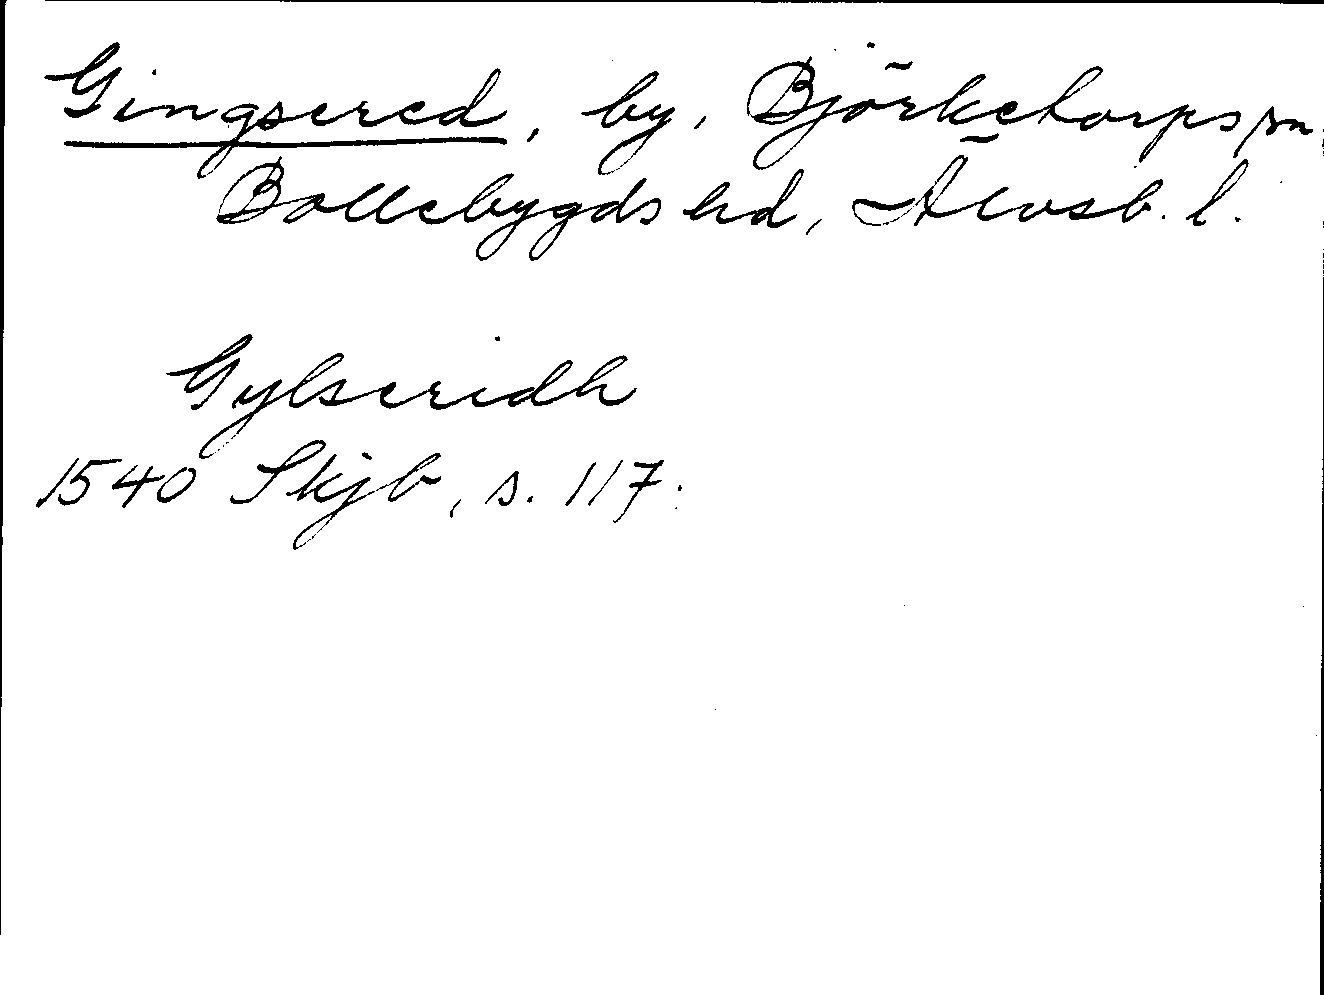 Gingsered, by, Björketorps sn
Bollebygds hd, Älvsb. l.
Gylseridh
1540 Skjb, s. 117.